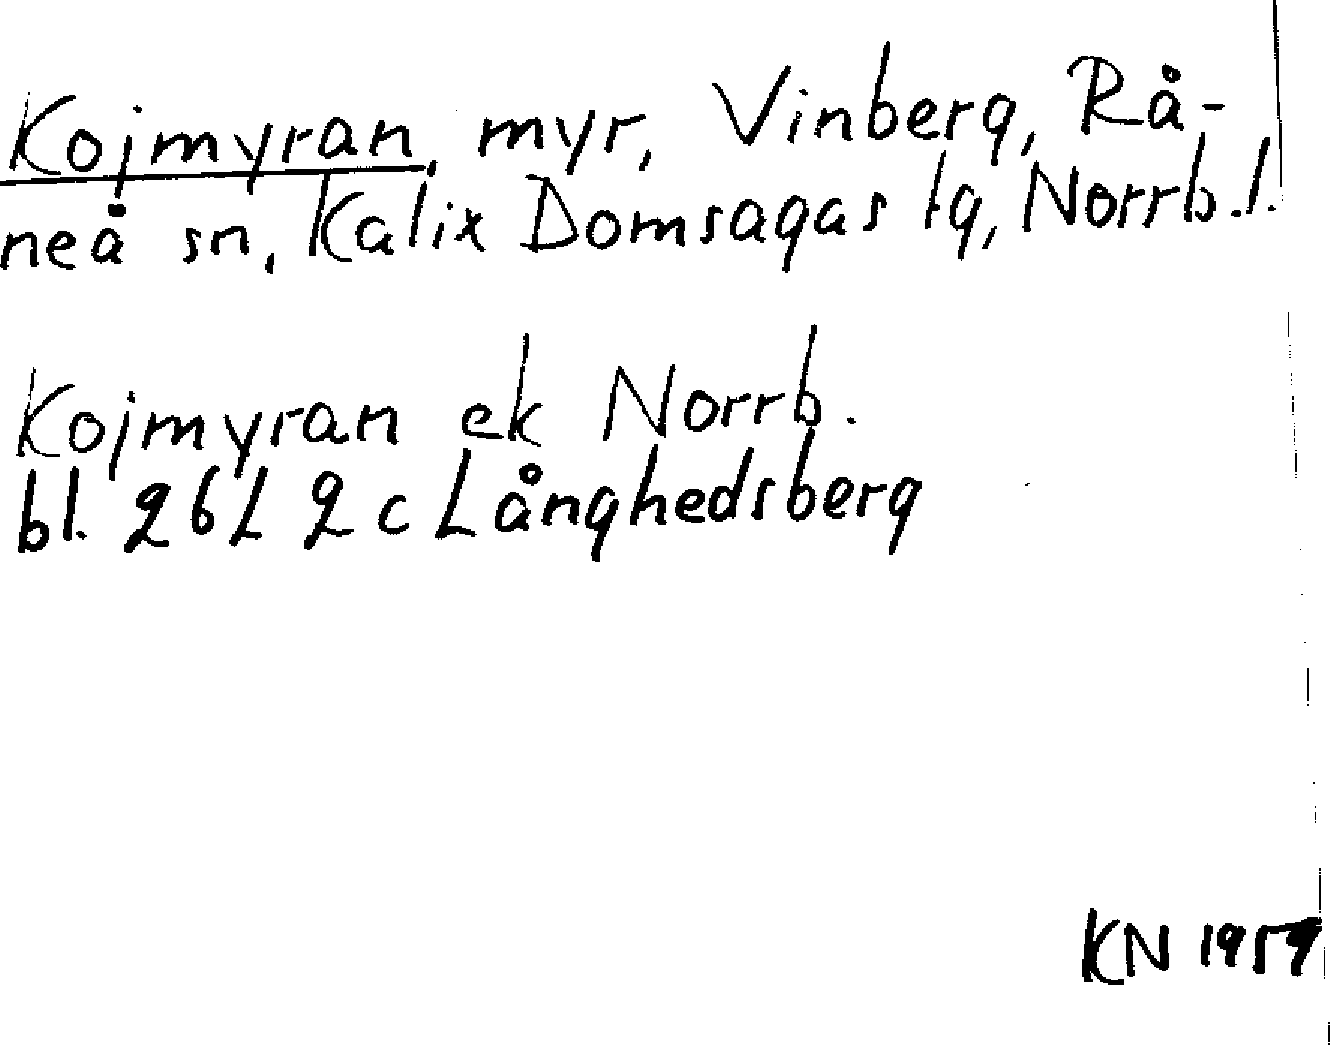 Kojmyran, myr, Vinberg, Rå-
neå sn, Kalix Domsagas tg, Norrb.l.
Kojmyran ek Norrb.
bl. 26L 2c Långhedsberg
KN 1959